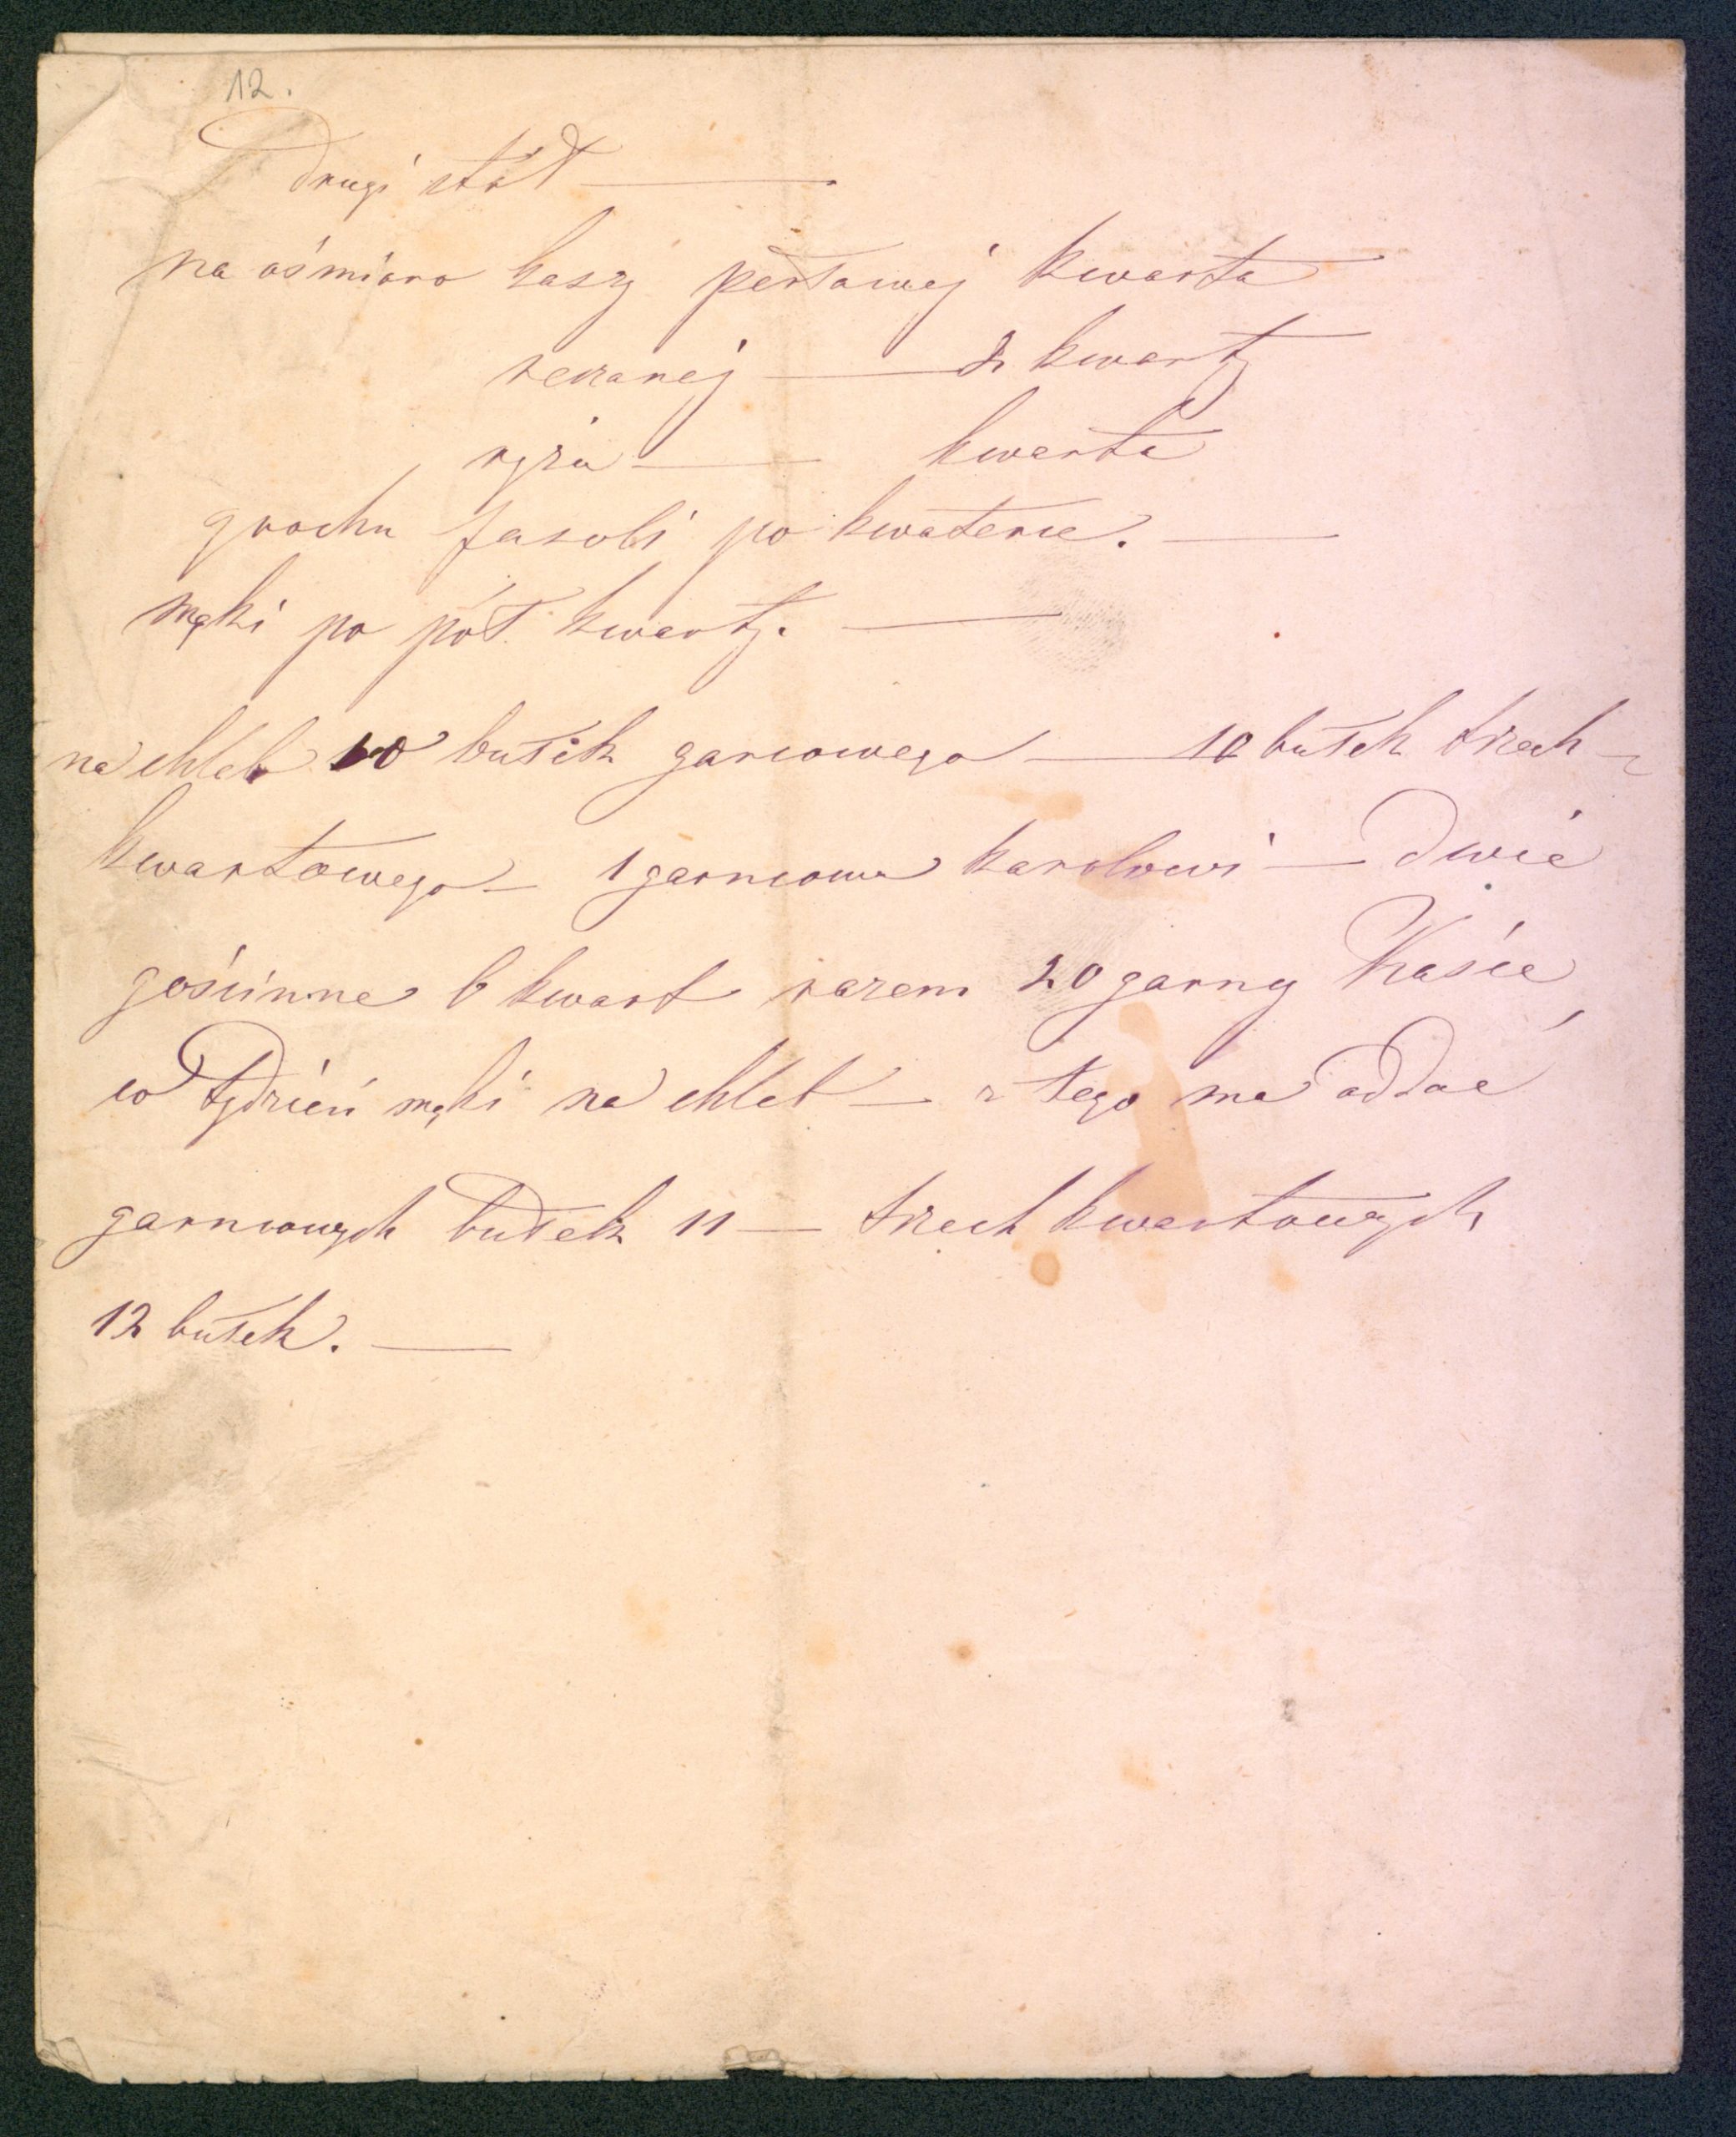 12.
Drugi stół —
na ośmioro kaszy perłowej kwarta
reczanej — 2 kwarty
ryżu — kwarta
grochu fasoli po kwaterce. —
mąki po pół kwarty. —
na chleb 10 bułek garcowego — 10 bułek trzech-
kwartowego — 1 garncowa karolowi — dwie
gościnne 6 kwart razem 20 garncy Kasie
w tydzień mąki na chleb — z tego ma oddać
garncowych bułek 11 — trzech kwartowych
12 bułek. —